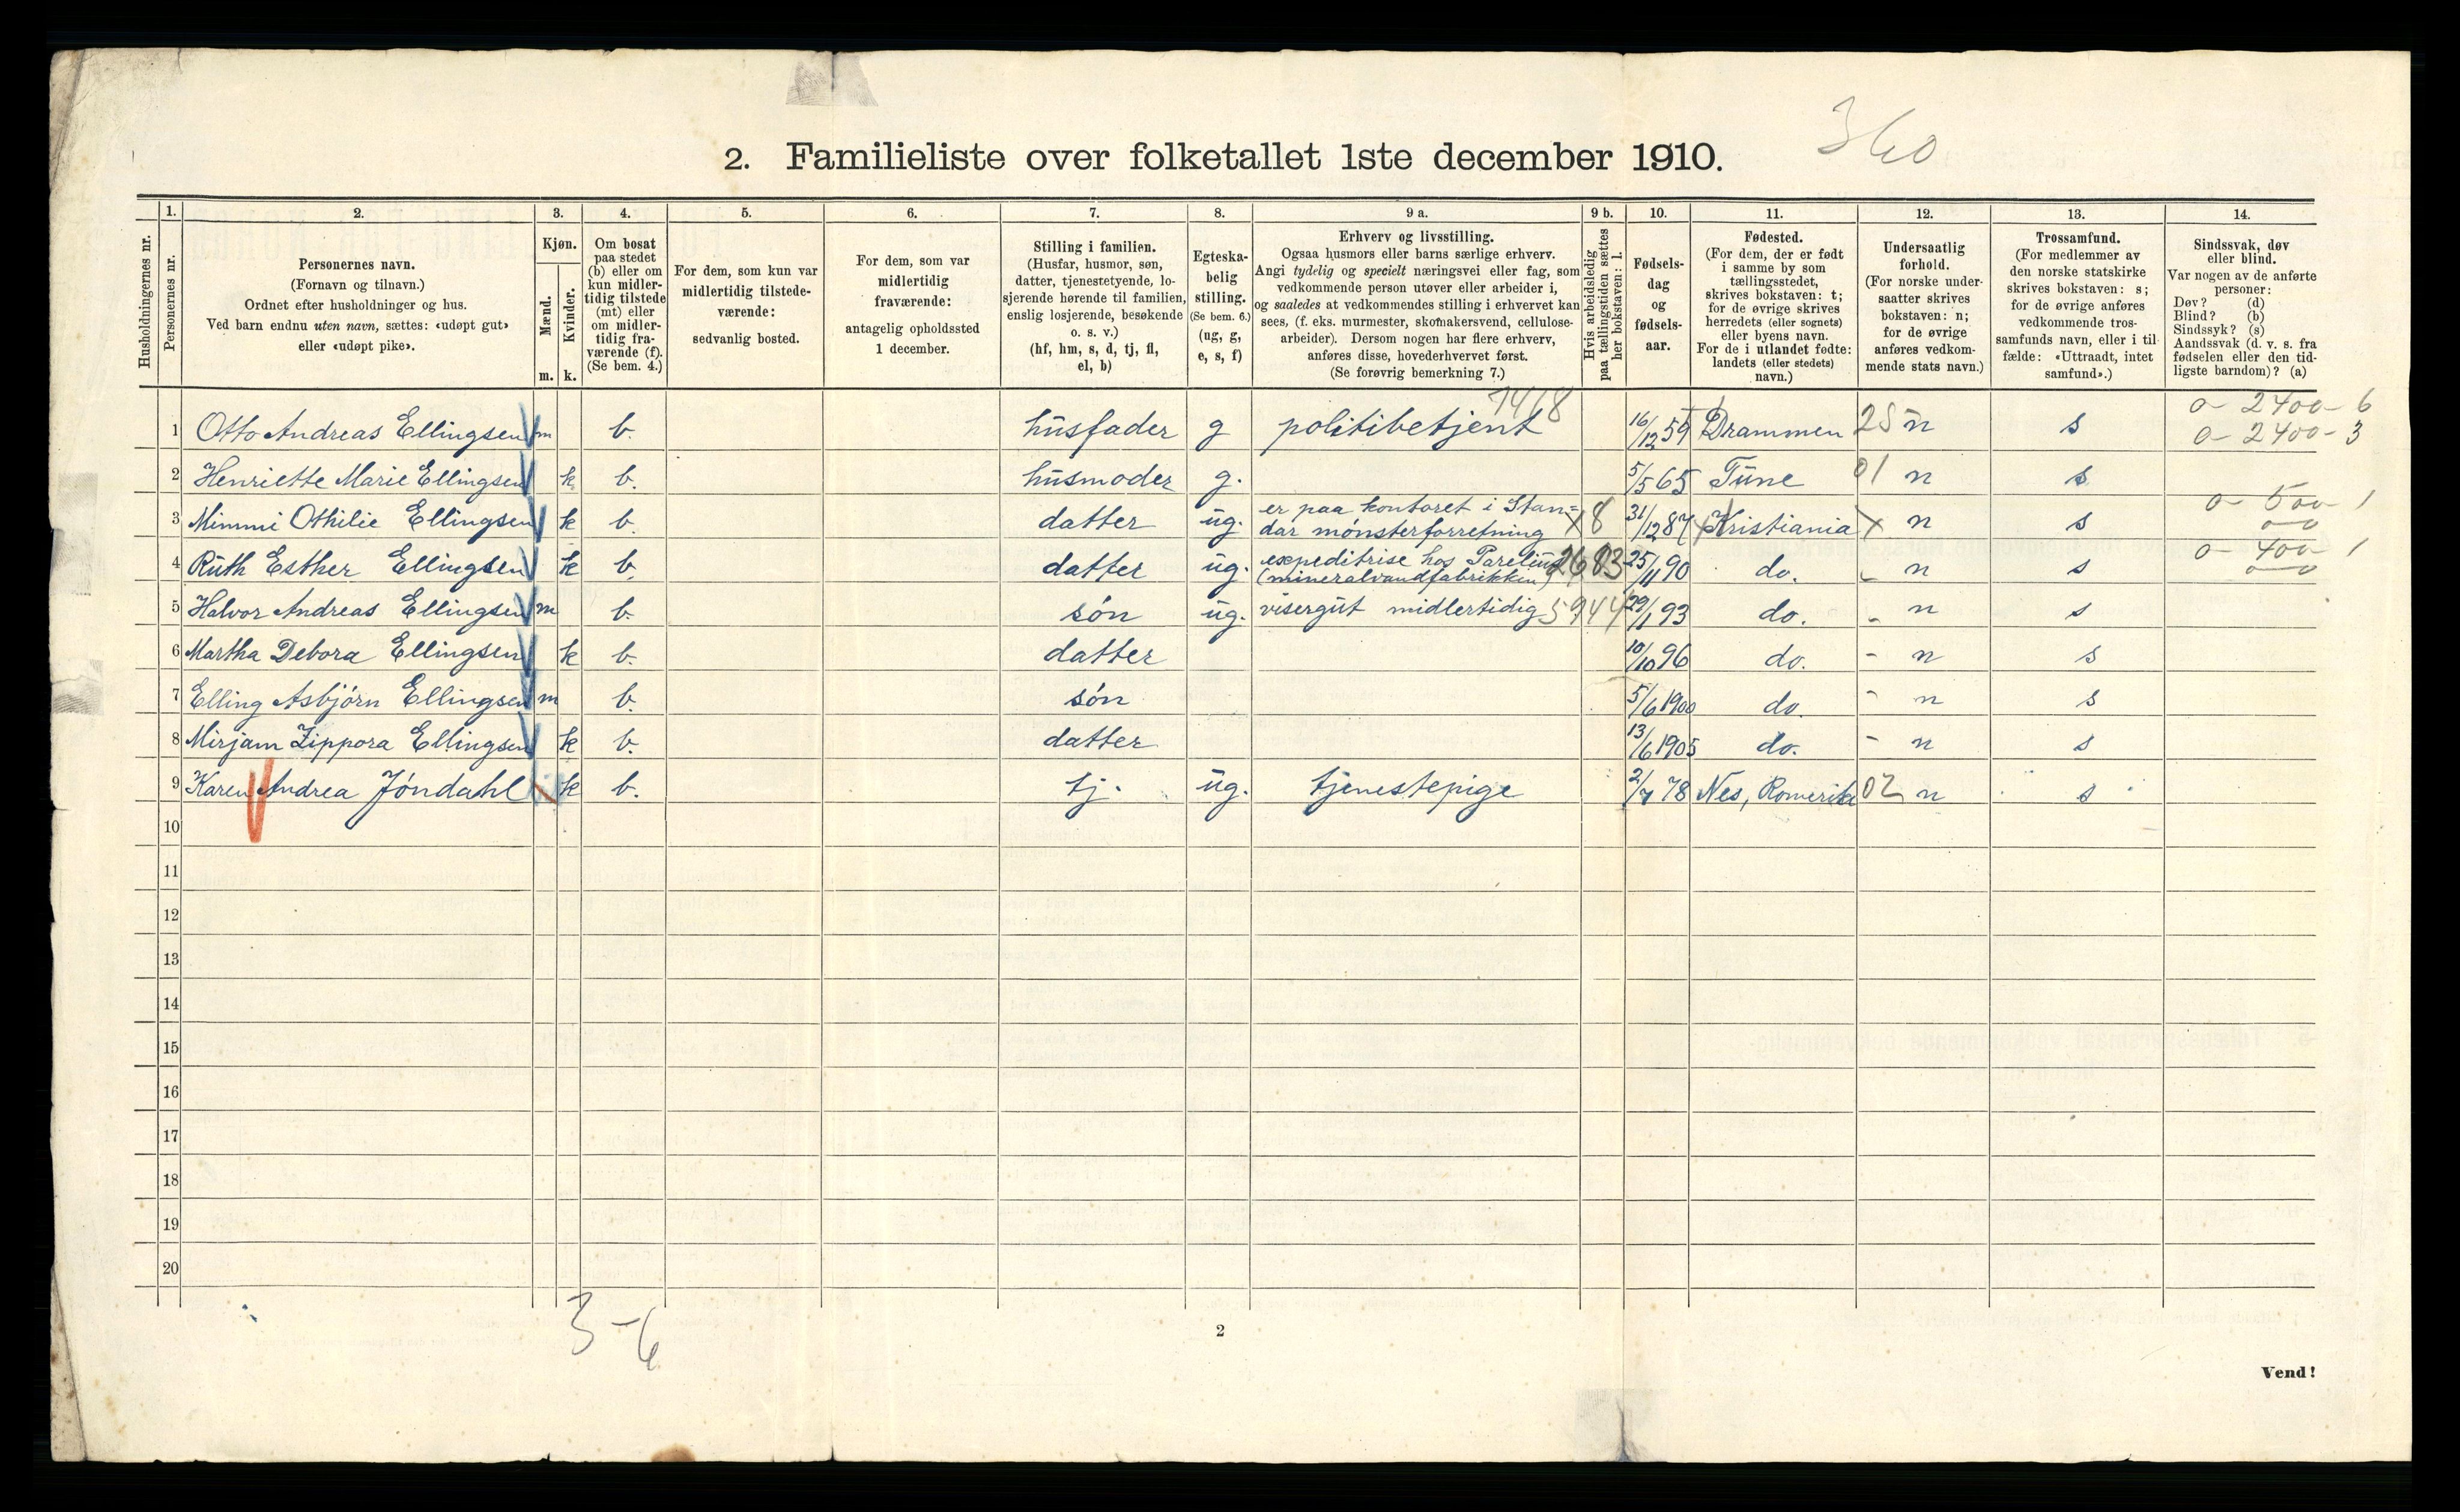 360
2. Familieliste over folketallet 1ste december 1910.
Husholdningernes nr.
1. Personernes nr.
2. Personernes navn. (Fornavn og tilnavn.) Ordnet efter husholdninger og hus. Ved barn endnu uten navn, sættes: «udøpt gut» eller «udøpt pike».
3. Kjøn. Mænd. m. Kvinder. k.
4. Om bosat paa stedet (b) eller om kun midlertidig tilstede (mt) eller om midlertidig fraværende (f). (Se bem. 4.)
5. For dem, som kun var midlertidig tilstedeværende: sedvanlig bosted.
6. For dem, som var midlertidig fraværende: antagelig opholdssted 1 december.
7. Stilling i familien. (Husfar, husmor, søn, datter, tjenestetyende, losjerende hørende til familien, enslig losjerende, besøkende o. s. v.) (hf, hm, s, d, tj, fl, el, b)
8. Egteskabelig stilling. (Se bem. 6.) (ug, g, e, s, f)
9 a. Erhverv og livsstilling. Ogsaa husmors eller barns særlige erhverv. Angi tydelig og specielt næringsvei eller fag, som vedkommende person utøver eller arbeider i, og saaledes at vedkommendes stilling i erhvervet kan sees, (f. eks. murmester, skomakersvend, cellulosearbeider). Dersom nogen har flere erhverv, anføres disse, hovederhvervet først. (Se forøvrig bemerkning 7.)
9 b. Hvis arbeidsledig paa tællingstiden sættes her bokstaven: l.
10. Fødselsdag og fødselsaar.
11. Fødested. (For dem, der er født i samme by som tællingsstedet, skrives bokstaven: t; for de øvrige skrives herredets (eller sognets) eller byens navn. For de i utlandet fødte: landets (eller stedets) navn.)
12. Undersaatlig forhold. (For norske undersaatter skrives bokstaven: n; for de øvrige anføres vedkommende stats navn.)
13. Trossamfund. (For medlemmer av den norske statskirke skrives bokstaven: s; for de øvrige anføres vedkommende trossamfunds navn, eller i tilfælde: «Uttraadt, intet samfund».)
14. Sindssvak, døv eller blind. Var nogen av de anførte personer: Døv? (d) Blind? (b) Sindssyk? (s) Aandssvak (d. v. s. fra fødselen eller den tidligste barndom)? (a)
1 Otto Andreas Ellingsen m b. husfader g politibetjent 16/12 59 Drammen 25 n s 0 - 2400 - 6 0 - 2400 - 3
2 Henriette Marie Ellingsen k b. husmoder g. 5/5 65 Tune 01 n s
3 Mimmi Othilie Ellingsen k b. datter ug. er paa kontoret i Standar mønsterforretning X8 31/12 87 Kristiania X n s 0 - 500 - 1
4 Ruth Esther Ellingsen k b. datter ug. expeditrise hos Parelius (mineralvandfabrikken) 2683 25/11 90 do. - n s 0 - 400 - 1
5 Halvor Andreas Ellingsen m b. søn ug. visergut midlertidig 5944 29/1 93 do. - n s
6 Martha Debora Ellingsen k b. datter 10/10 96 do. - n s
7 Elling Asbjørn Ellingsen m b. søn 5/6 1900 do. - n s
8 Mirjam Zippora Ellingsen k b. datter 13/6 1905 do. - n s
9 Karen Andrea Jøndahl k b. tj. ug. tjenestepige 2/7 78 Nes, Romerike 02 n s
10
11
12
13
14
15
16
17
18
19
20
3-6
2
Vend!